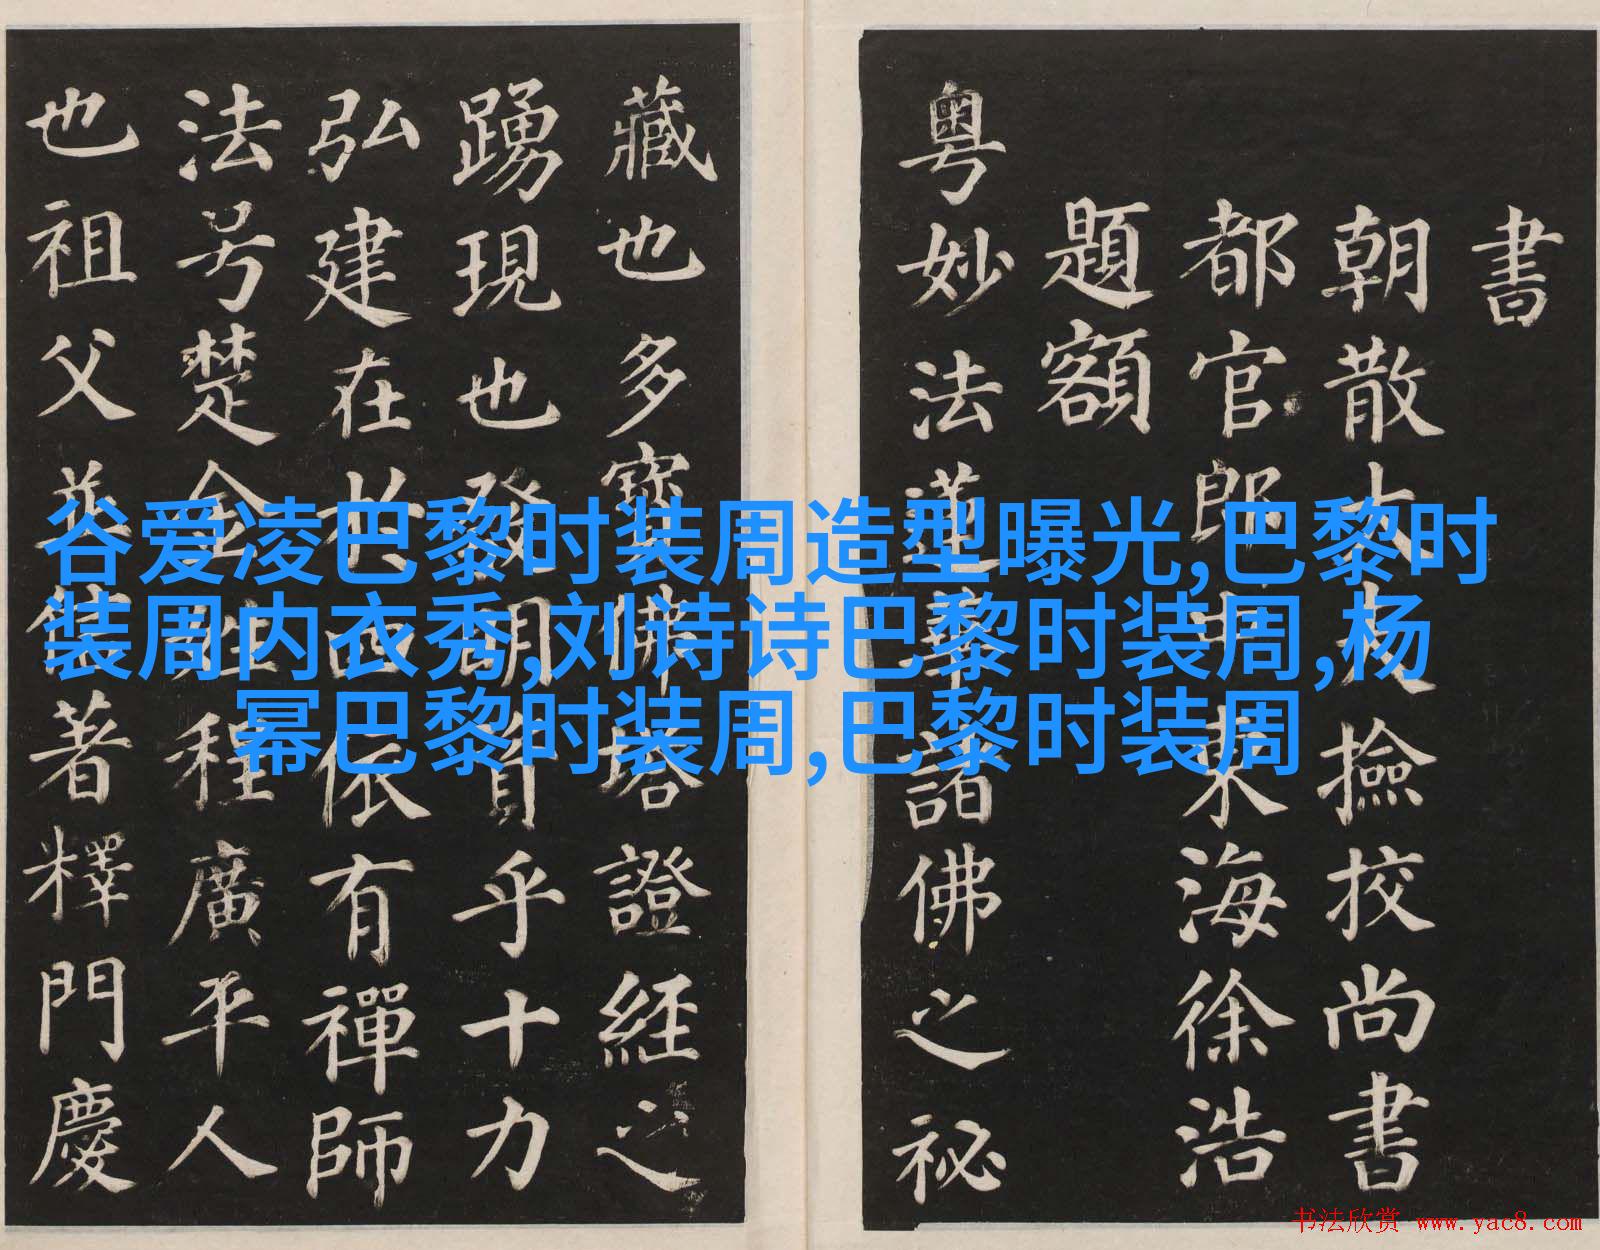 谷爱凌巴黎时装周造型曝光,巴黎时
装周内衣秀,刘诗诗巴黎时装周,杨
幂巴黎时装周,巴黎时装周
書
朝散大夫撿挍尚書
都官郎中東海徐浩
題額
粤妙法蓮華諸佛之祕
藏也多寶佛塔證經之
踴現也發明資乎十力
弘建在於四依有禪師
法号楚金姓程廣平人
也祖父並信著釋門慶
书法欣赏 www.yac8.com